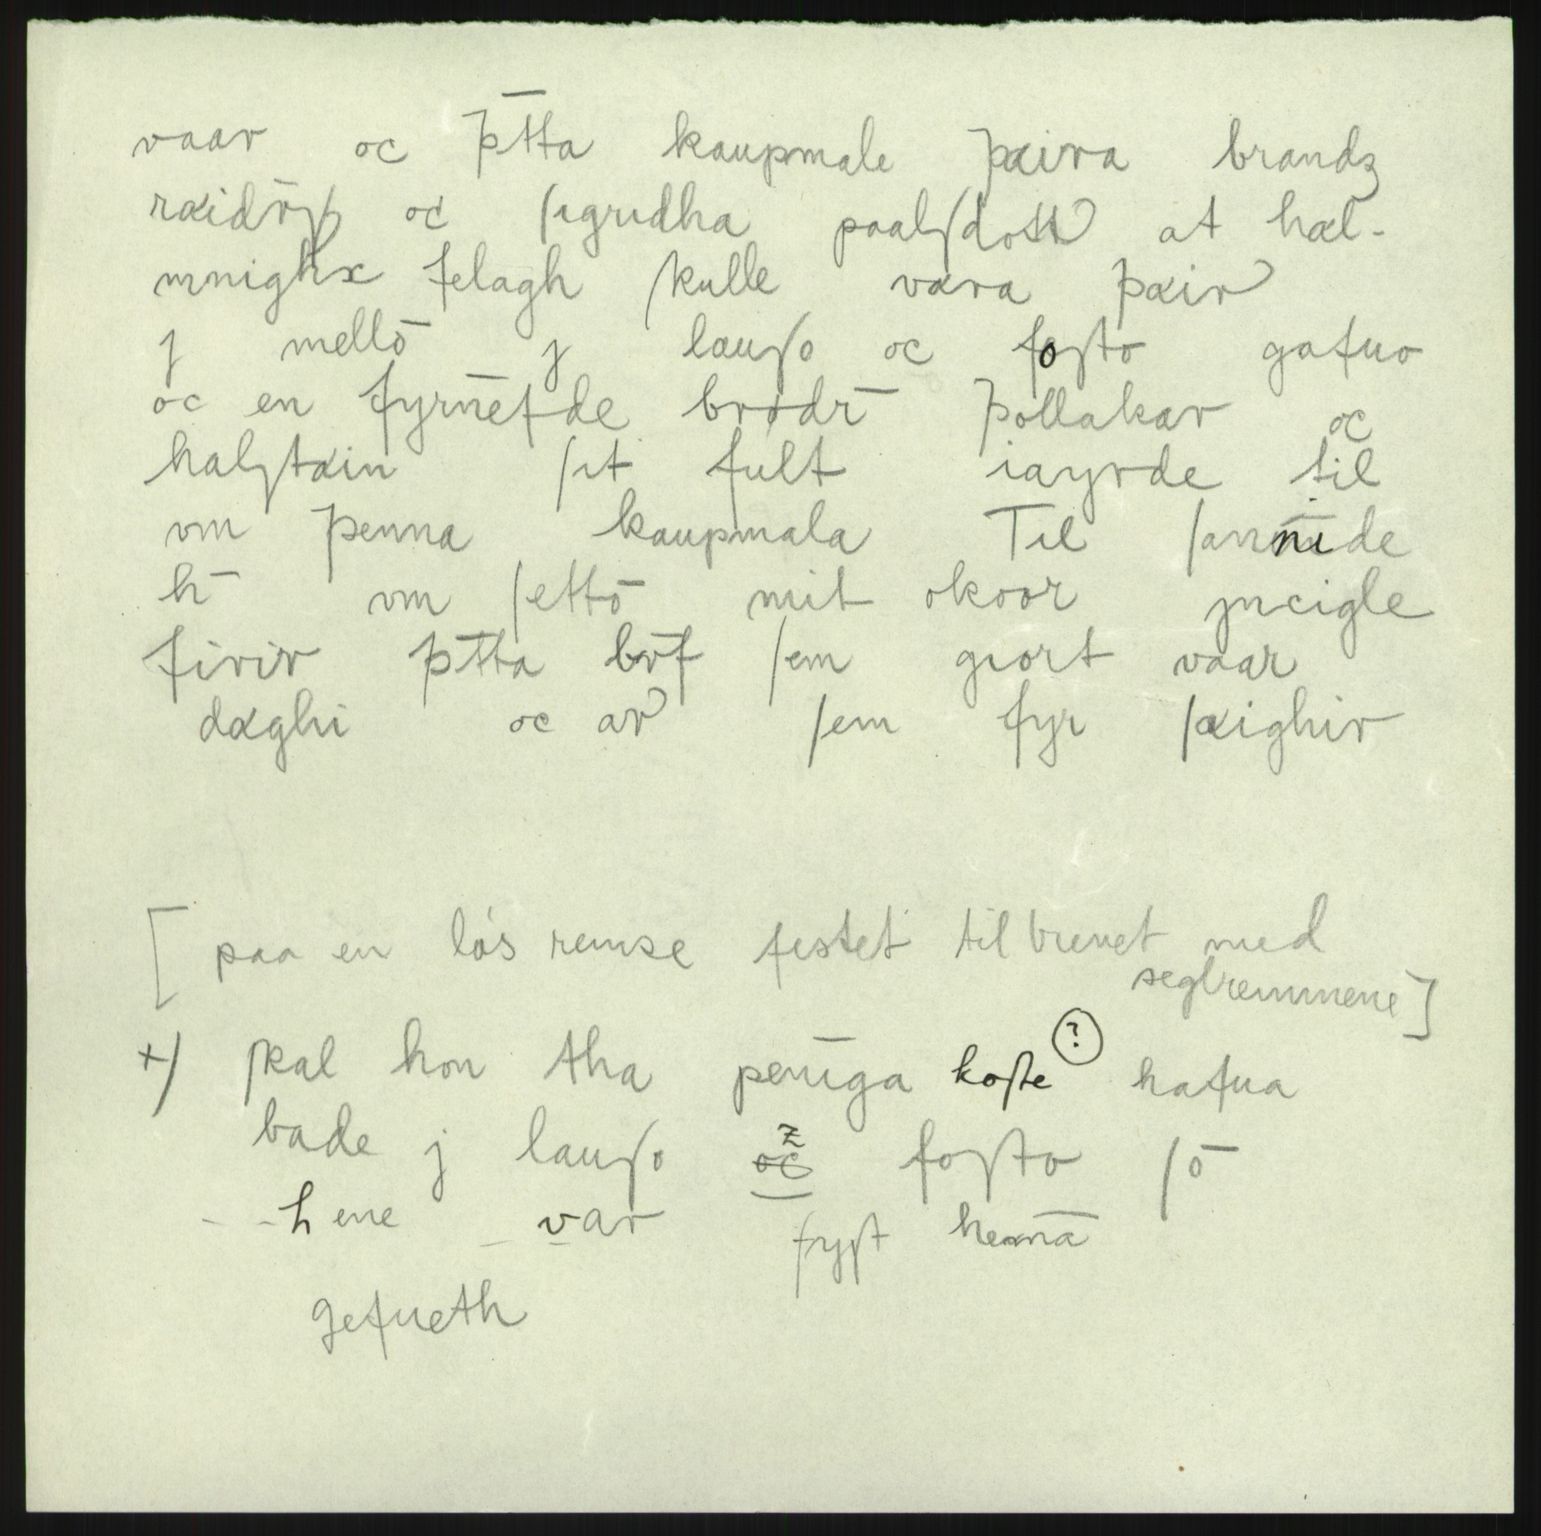 vaar oc þt̄ta kaupmale þæira brandz
ræidr̄ſſ oc ſigridha paalſdott at hæl-
mnighx felagh ſkulle væra þæir
j mellō j lauſo oc foſto gafuo
oc en fyrnēfde brødr̄ þollakar oc
halſtæin ſit fult iayrde til
vm þenna kaupmala Til ſannīde
h̄ vm ſettō mit okoor jncigle
firir þt̄ta brf̄ ſem giort vaar
dæghi oc ar ſem fyr ſæighir
[paa en løs remse festet til brevet med
seglremmene]
+) ſkal hon tha penīga koſte (?) hafua
bade j lauſo oc z foſto ſō
- - hene var fyſt hemā
gefueth